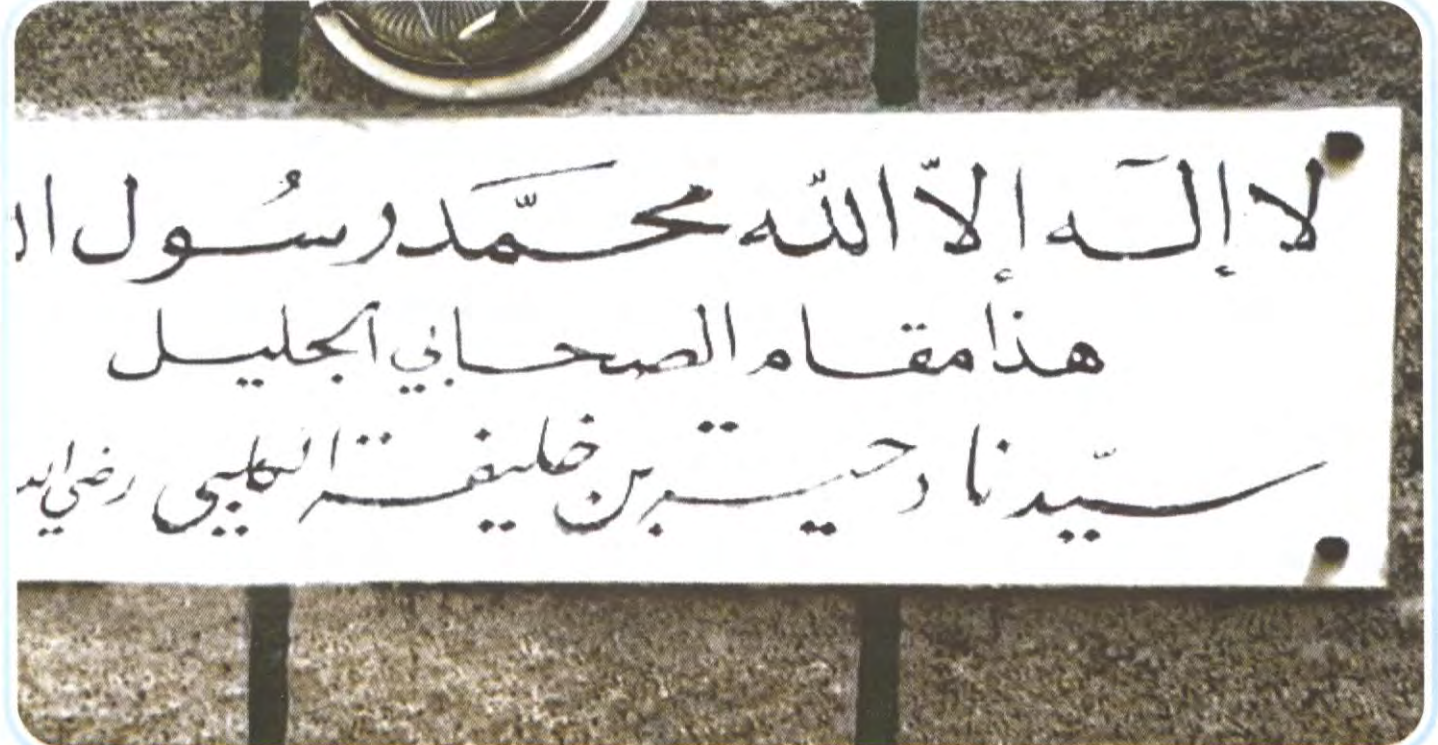 لا إلـه إلّا الله محمّد رسُول ا
هذا مقام الصحابي الجليل
سيّدنا دحية بن خليفة الكلبي رضي الله